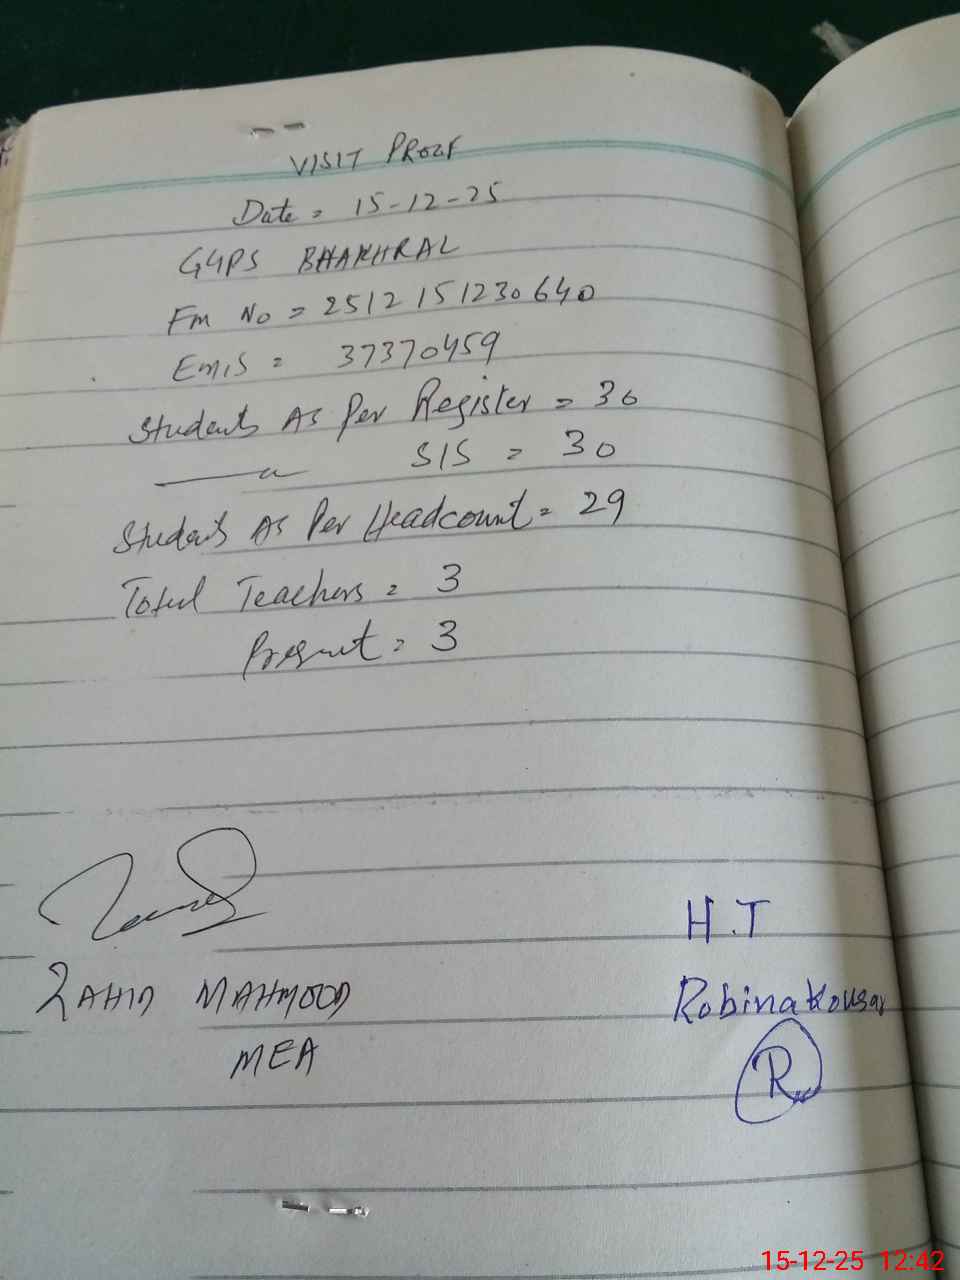 VISIT PROOF
Date = 15-12-25
GGPS BHAKHRAL
Fm No = 2512151230640
Emis = 37370459
Students As Per Register = 30
—〃— SIS = 30
Students As Per Headcount = 29
Total Teachers = 3
Present = 3
ZAHID MAHMOOD
MEA
H.T
Robina Kousar
R
15-12-25 12:42